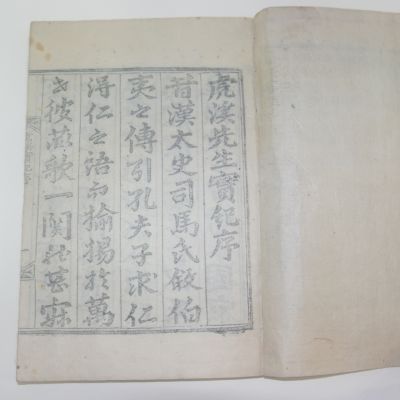 虎溪先生實紀序
昔漢太史司馬氏叙伯
夷之傳引孔夫子求仁
得仁之語而揄揚於萬
古彼燕歌一関性甚寐